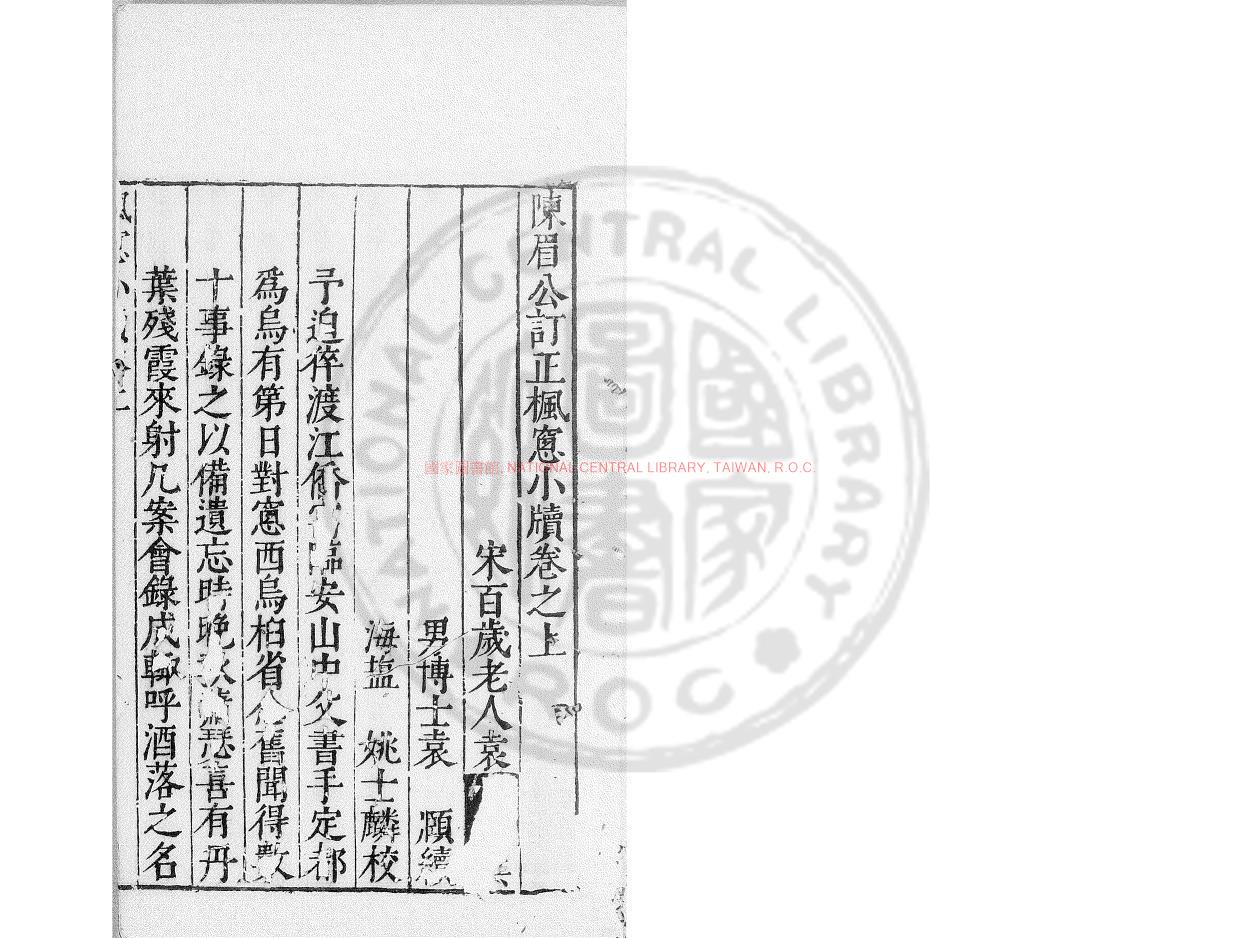 陳眉公訂正楓窻小牘卷之上
宋百歲老人袁
男博士袁 頤續
海塩 姚士麟校
予迫猝渡江僑臨安山中父書手定都
爲烏有第日對窻西烏桕省舊聞得數
十事錄之以備遺忘時晚秋蕭瑟喜有丹
葉殘霞來射几案會錄成輒呼酒落之名
國家圖書館, NATIONAL CENTRAL LIBRARY, TAIWAN, R.O.C.
NATIONAL CENTRAL LIBRARY
R O C
國家圖書館